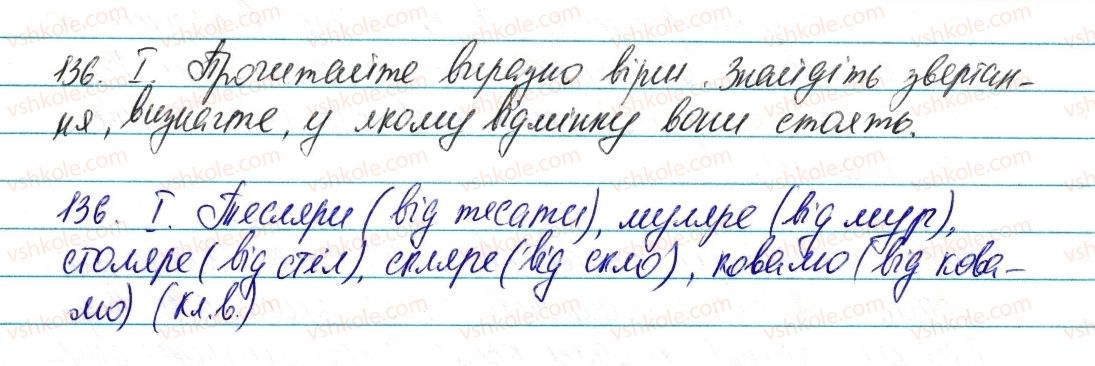 136. I. Прочитайте виразно вірш. Знайдіть звертан-
ня, визначте, у якому відмінку вони стоять.
136. I. Теслярі (від тесати), муляре (від мур),
столяре (від стіл), скляре (від скло), ковалю (від кова-
лю) (кл.в.)
vshkole.com